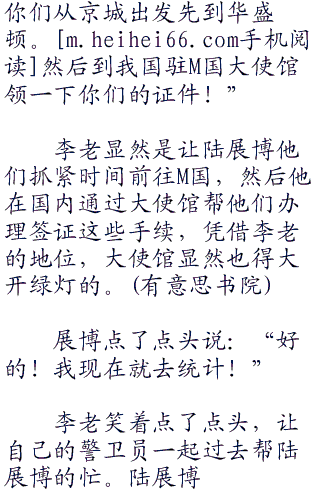 你们从京城出发先到华盛
顿。[m.heihei66.com手机阅
读]然后到我国驻M国大使馆
领一下你们的证件！”
李老显然是让陆展博他
们抓紧时间前往M国，然后他
在国内通过大使馆帮他们办
理签证这些手续，凭借李老
的地位，大使馆显然也得大
开绿灯的。(有意思书院)
展博点了点头说：“好
的！我现在就去统计！”
李老笑着点了点头，让
自己的警卫员一起过去帮陆
展博的忙。陆展博